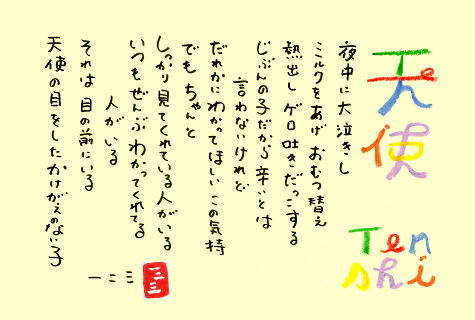 天使
Tenshi
夜中に大泣きし
ミルクをあげ おむつ替え
熱出し ゲロ吐き だっこする
じぶんの子だから 辛いとは
言わないけれど
だれかに わかってほしい この気持
でも ちゃんと
しっかり見てくれている 人がいる
いつも ぜんぶ わかってくれてる
人が いる
それは 目の前にいる
天使の目をした かけがえのない子
一二三